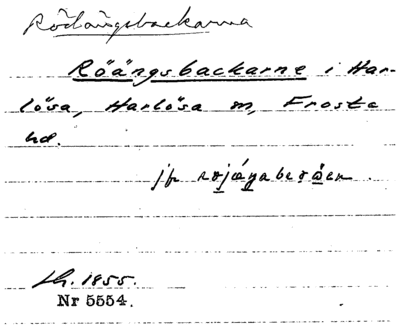 Rödängsbackarna
Röängsbackarne i Har-
lösa, Harlösa sn, Frosta
hd.
jfr
Lh. 1855.
Nr 5554.